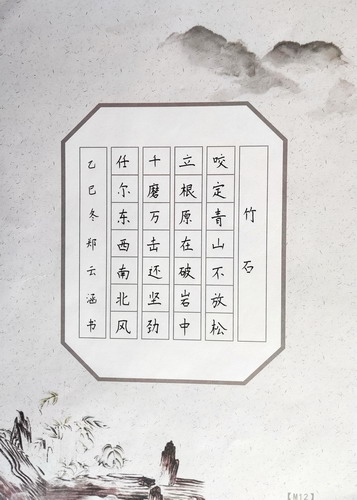 竹石
咬定青山不放松
立根原在破岩中
十磨万击还坚劲
任尔东西南北风
乙巳冬郑云涵书
【M12】